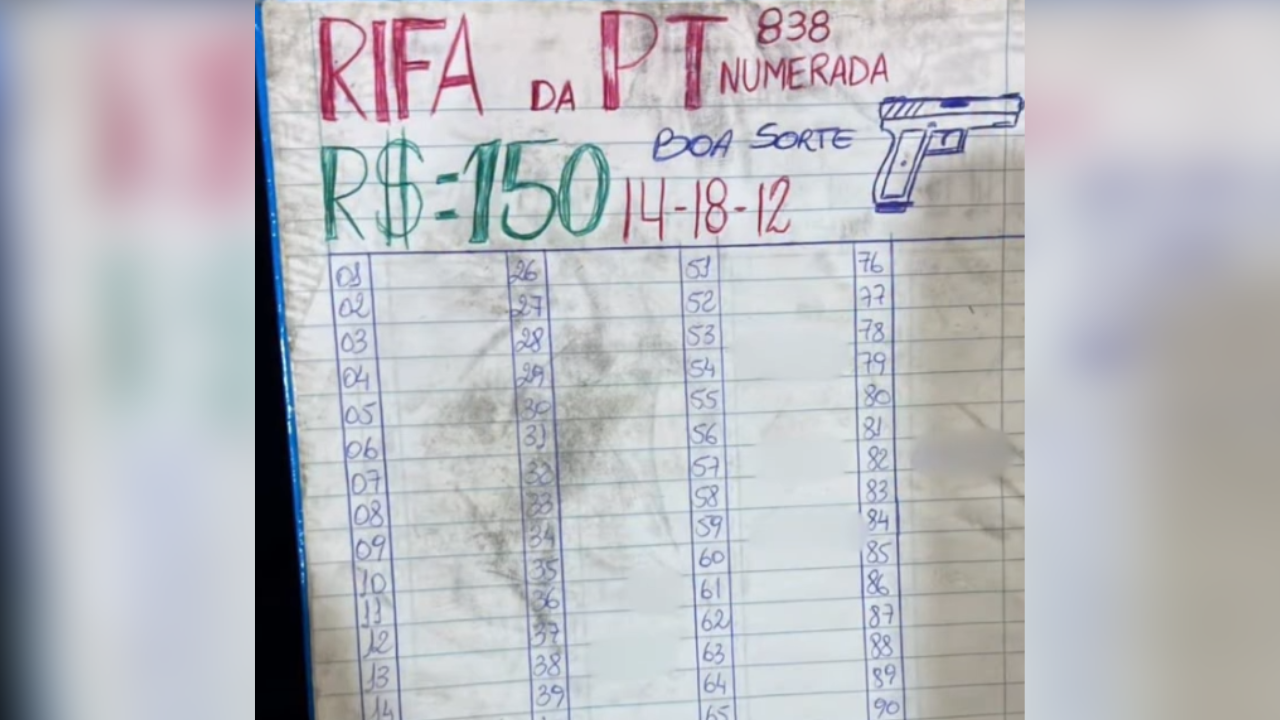 RIFA DA PT 838
NUMERADA
BOA SORTE
R$=150 14-18-12
01 26 51 76
02 27 52 77
03 28 53 78
04 29 54 79
05 30 55 80
06 31 56 81
07 32 57 82
08 33 58 83
09 34 59 84
10 35 60 85
11 36 61 86
12 37 62 87
13 38 63 88
14 39 64 89
65 90